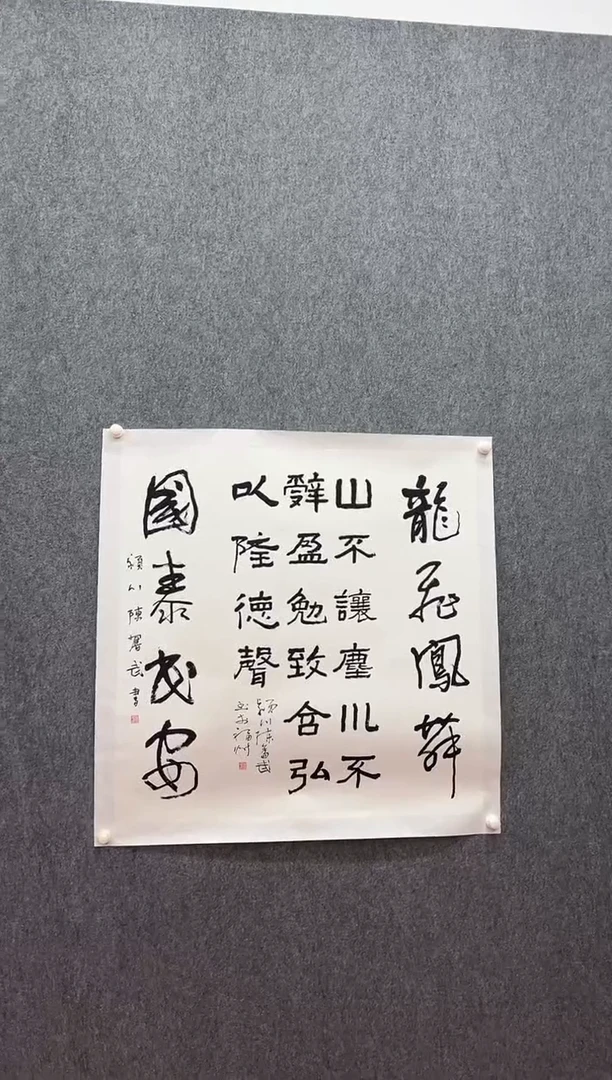 龍飛鳳舞
山不讓塵川不
辤盈勉致含弘
以隆德聲
頴川陳耆武
書於福州
國泰民安
頴川陳耆武書